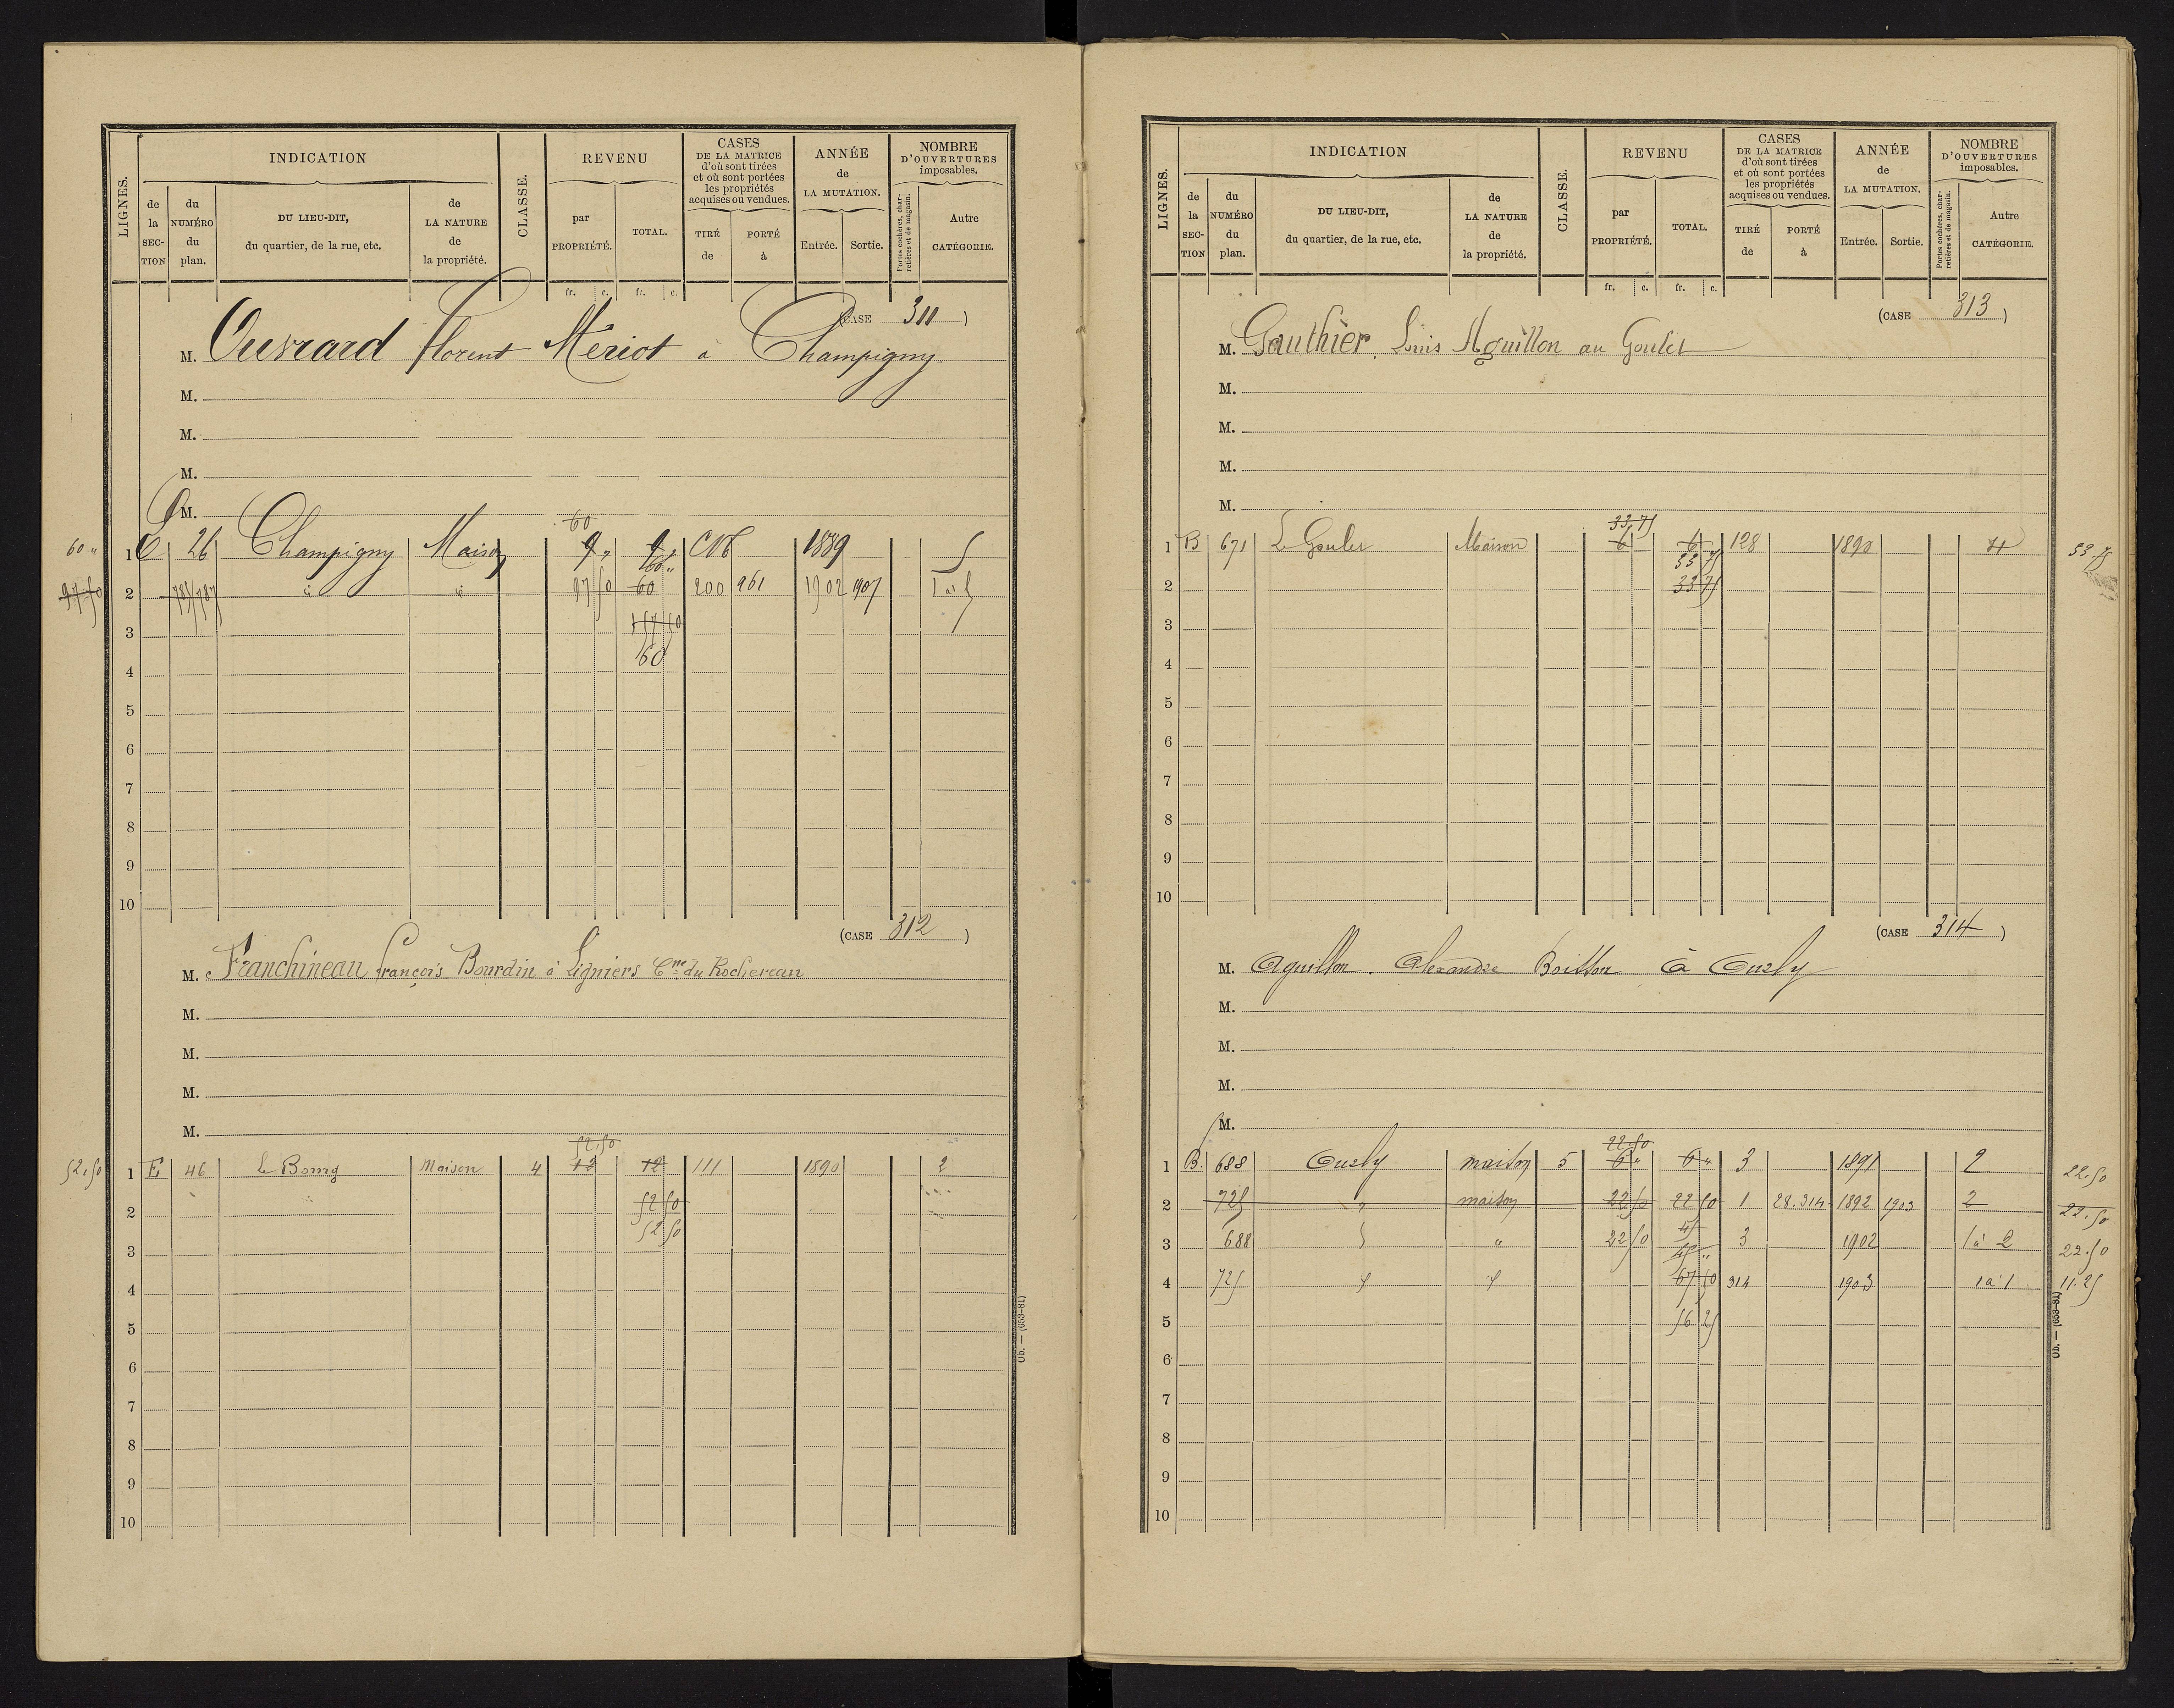 LIGNES.
INDICATION
CLASSE.
REVENU
CASES
DE LA MATRICE
d'où sont tirées
et où sont portées
les propriétés
acquises ou vendues.
ANNÉE
de
LA MUTATION.
NOMBRE
D'OUVERTURES
imposables.
de la SECTION
du NUMÉRO du plan.
DU LIEU-DIT,
du quartier, de la rue, etc.
de LA NATURE de la propriété.
par PROPRIÉTÉ.
TOTAL.
TIRÉ de
PORTÉ à
Entrée.
Sortie.
Portes cochères, charretières et de magasin.
Autre CATÉGORIE.
fr. c. fr. c.
(CASE 311)
M. Ouvrard florent Mériot à Champigny
M.
M.
M.
M.
60
60 " 1 E 26 Champigny Maison 9 " 9 " CN 1889 5
60 "
97 50 2 785/787 " " 97 50 60 200 961 1902 1907 1 à 5
3 157 50
60
4
5
6
7
8
9
10
(CASE 312)
M. Franchineau françois Bourdin à Ligniers Cne du Rochereau
M.
M.
M.
M.
52,50
52,50 1 E 46 le Bourg Maison 4 12 12 111 1890 2
52 50
2 52 50
3
4
5
6
7
8
9
10
Ob. — (653-81)
LIGNES.
INDICATION
CLASSE.
REVENU
CASES
DE LA MATRICE
d'où sont tirées
et où sont portées
les propriétés
acquises ou vendues.
ANNÉE
de
LA MUTATION.
NOMBRE
D'OUVERTURES
imposables.
de la SECTION
du NUMÉRO du plan.
DU LIEU-DIT,
du quartier, de la rue, etc.
de LA NATURE de la propriété.
par PROPRIÉTÉ.
TOTAL.
TIRÉ de
PORTÉ à
Entrée.
Sortie.
Portes cochères, charretières et de magasin.
Autre CATÉGORIE.
fr. c. fr. c.
(CASE 313)
M. Gauthier, Louis Aguillon au Goulet
M.
M.
M.
M.
33,75
1 B 671 Le Goulet Maison 6 6 128 1890 4 33.75
33 75
2 33 75
3
4
5
6
7
8
9
10
(CASE 314)
M. Aguillon. Alexandre Boisson à Cuzly
M.
M.
M.
M.
22.50
1 B. 688 Cuzly maison 5 6 " 6 " 3 1891 2 22.50
2 725 " maison 22 50 22 50 1 28.314 1892 1903 2 22.50
45
3 688 " 22 50 45 " 3 1902 1 à 2 22.50
4 725 67 50 314 1903 1 à 1 11.25
5 56 25
6
7
8
9
10
Ob. — (653-81)